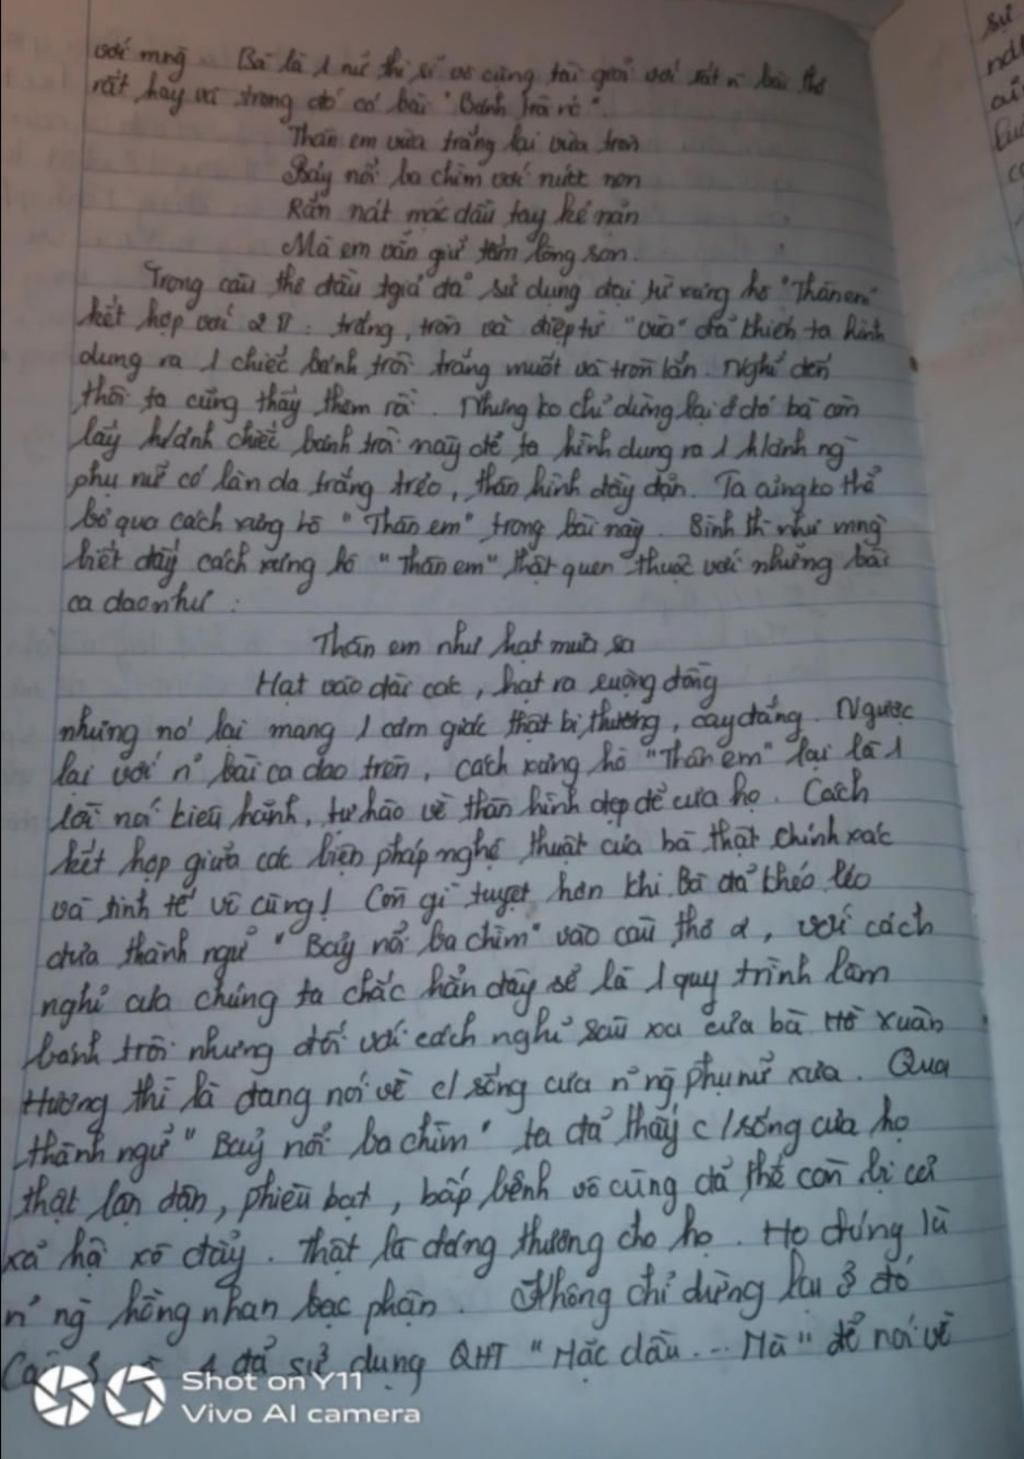 với mng Bà là 1 nữ thi sĩ vô cùng tài giỏi với rất n bài thơ
rất hay và trong đó có bài "Bánh trôi nc".
Thân em vừa trắng lại vừa tròn
Bảy nổi ba chìm với nước non
Rắn nát mặc dầu tay kẻ nặn
Mà em vẫn giữ tấm lòng son.
Trong câu thơ đầu tgiả đã sử dụng đại từ xưng hô "Thân em"
kết hợp với 2 TT: trắng, tròn và điệp từ "vừa" đã khích ta hình
dung ra 1 chiếc bánh trôi trắng muốt và tròn lẳn. Nghĩ đến
thôi ta cũng thấy thèm rồi. Nhưng ko chỉ dừng lại ở đó bà còn
lấy h/ảnh chiếc bánh trôi này để ta hình dung ra 1 h/ảnh ng
phụ nữ có làn da trắng trẻo, thân hình đầy đặn. Ta cũng ko thể
bỏ qua cách xưng hô "Thân em" trong bài này. Bình thì như mng
biết đấy cách xưng hô "Thân em" thật quen thuộc với những bài
ca dao như :
Thân em như hạt mưa sa
Hạt vào đài các, hạt ra ruộng đồng
nhưng nó lại mang 1 cảm giác thật bi thương, cay đắng. Ngược
lại với n bài ca dao trên, cách xưng hô "Thân em" lại là 1
lời nói kiêu hãnh, tự hào về thân hình đẹp đẽ của họ. Cách
kết hợp giữa các biện pháp nghệ thuật của bà thật chính xác
và tinh tế vô cùng! Còn gì tuyệt hơn khi Bà đã khéo léo
đưa thành ngữ "Bảy nổi ba chìm" vào câu thơ 2, với cách
nghĩ của chúng ta chắc hẳn đây sẽ là 1 quy trình làm
bánh trôi nhưng đối với cách nghĩ sâu xa của bà Hồ Xuân
Hương thì là đang nói về c/sống của n ng phụ nữ xưa. Qua
thành ngữ "Bảy nổi ba chìm" ta đã thấy c/sống của họ
thật lận đận, phiêu bạt, bấp bênh vô cùng đã thế còn bị cả
xã hội xô đẩy. Thật là đáng thương cho họ. Họ đúng là
n ng hồng nhan bạc phận. Không chỉ dừng lại ở đó
4 đã sử dụng QHT "Mặc dầu... Mà" để nói về
Shot on Y11
Vivo AI camera